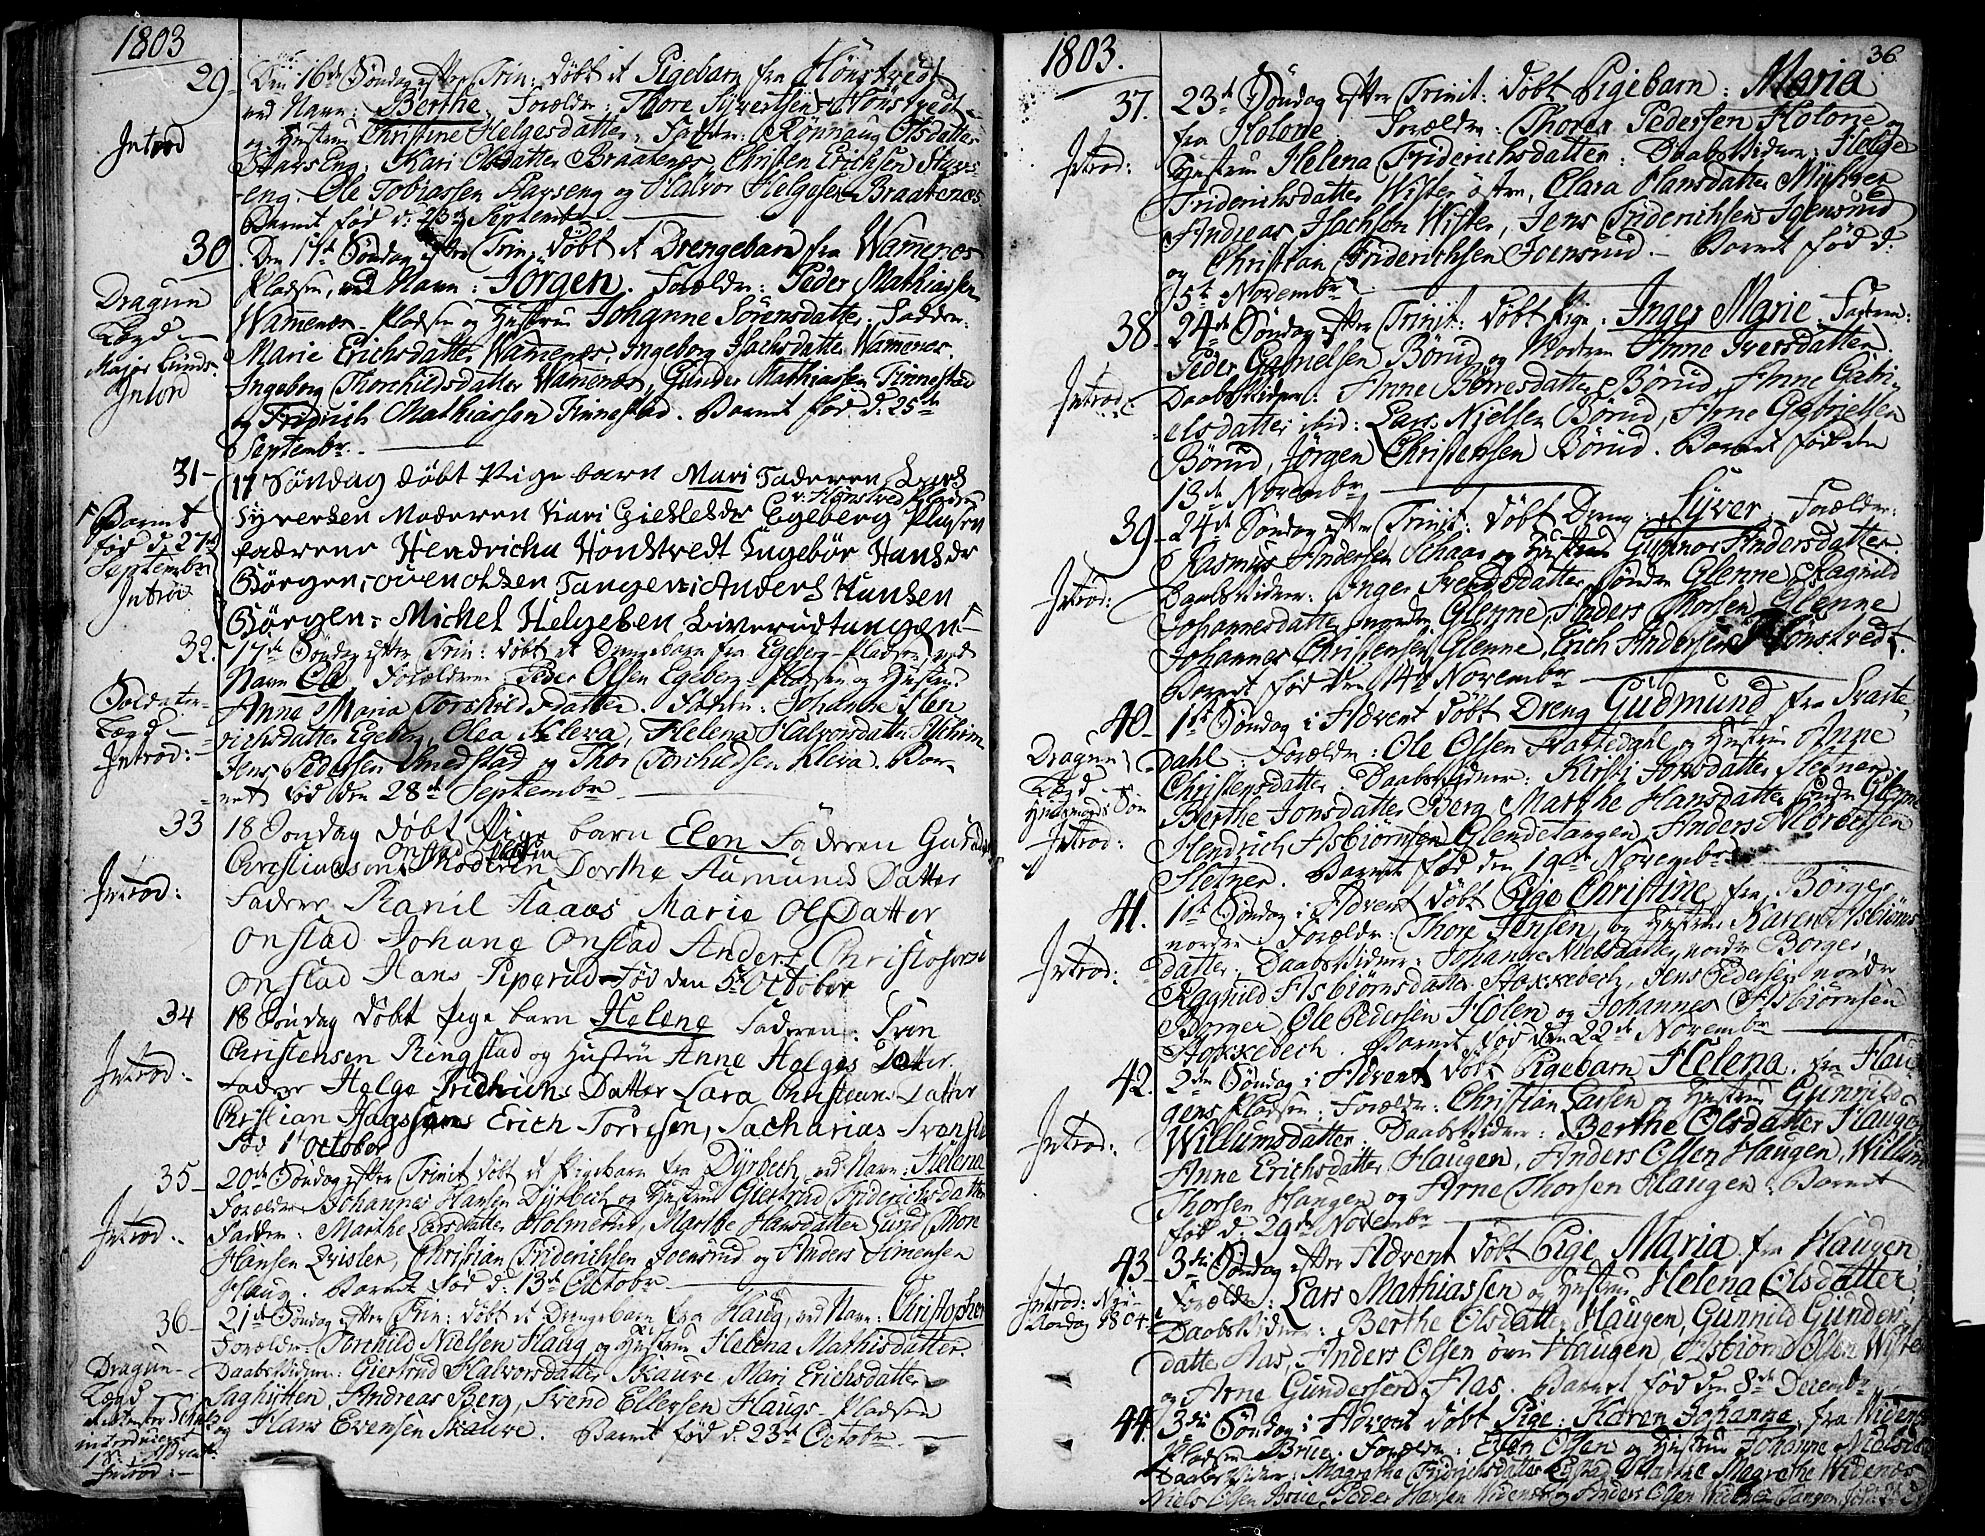 1803
29. Den 16de Søndag efter Trin: døbt et Pigebarn fra Hønstvedt
ved Navn: Berthe. Forældre: Thore Syvertsen Hønstvedt
Introd
og Hustrue Christine Helgesdatter. Faddere: Rønnaug Olsdatter
Aarseng, Kari Olsdatter Braatenes, Christen Erichsen
eng, Ole Tobiassen og Halvor Helgesen Braatenes
Barnet fød d: 23 Septembr
30. Den 17de Søndag efter Trin: døbt et Drengebarn fra Wamenæs
Pladsen, ved Navn: Jörgen. Forældre: Peder Mathiassen
Dragun
Lægd
Major Lunds.
Introd
Wamenæs-Pladsen og Hustrue Johanne Sörensdatter. Faddere:
Marie Erichsdatter Wamenæs, Ingeborg Isachsdatter Wamenæs.
Ingeborg Thorkildsdatter Wamenæs, Gunder Mathiassen Finnestad
og Fridrich Mathiassen Finnestad. Barnet fød d: 25de
Septembr.
31- 17 Söndag döbt Pige barn Mari Faderen Lars
v. Hönstved Pladsen
Syversen Moderen Kari Egeberg Pladsen
Barnet
fød d. 27de
Septembr
Introd
fadrene Hendricha Honstvedt Ingebör Hansdr
Börgen, ouen olsen Tangen: Anders Hansen
Börgen: Michel Helgesen Liverudtangen
32. 17de Søndag efter Trin: døbt et Drengebarn fra Egeberg-Pladsen ved
Navn Ole. Forældrene Peder Olsen Egeberg-Pladsen og Hustrue
Soldater-
Lægd
Introd:
Anne Maria Torskildsdatter. Faddere: Johanne
richsdatter Egeberg, Olea Kleva, Helena Halvorsdatter
Jens Pedersen Smedstad og Thor Torchildsen Kleva. Bar-
net fød den 28de Septembr
33 18 Søndag døbt Pige barn Elen Faderen
Christiansen Onstad Pladsen Moderen Dorthe Aamunds Datter
Introd:
Fadere Ranil Haaos Marie Ols Datter
Onstad Johane Onstad Anders Christophersen
Onstad Hans Piperud fød den 5 October
34 18 Søndag døbt Pige barn Helene Faderen: Svin
Christensen Ringstad og Hustru Anne Helges Datter
Introd:
Fadere Helge Fridrichs Datter Lara Christians Datter
Christian Erich Torresen, Sacharias
Fød 1 October
35- 20de Søndag efter Trinit: døbt et Pigebarn fra Dyrbech, ved Navn: Helena
Forældre: Johannes Hansen Dyrbech og Hustrue Giertrud Friderichsdatter
Introd:
Faddere: Marthe Larsdatter, Marthe Hansdatter Lund, Thore
Hansen Qvisler, Christian Friderichsen Joensrud og Anders Simensen
Haug. Barnet fød d: 13de Octobr
36- 21de Søndag efter Trin: døbt et Drengebarn fra Haug, ved Navn: Christopher
Forældre: Torchild Nielsen Haug og Hustrue Helena Mathisdatter.
Dragun-
Lægd
Daabs Vidner: Giertrud Halvorsdatter Skauve, Mari Erichsdatter
Saghytten, Andreas Berg, Svend Ellersen Haugs-Pladsen
og Hans Evensen Skauve. Barnet fød d: 23de Octobr.
introduceret
Introd:-
1803.
36
37. 23de Søndag efter Trinit: døbt Pigebarn: Maria
fra Holone. Forældre: Thorer Pedersen Holone og
Introd:
Hustrue Helena Friderichsdatter. Daabs Vidner: Helge
Friderichsdatter Wister østre, Clara Hansdatter
Andreas Isachsen Wister, Jens Friderichsen Joensrud
og Christian Friderichsen Joensrud. Barnet fød d:
15de Novembr
38. 24de Søndag efter Trinit: døbt Pige: Inger Marie. Faderen:
Peder Gabrielsen Börud og Moderen Anne Iversdatter.
Introd:
Daabs Vidner: Anne Börresdatter Börud, Anne Gabri-
elsdatter ibid: Lars Nielsen Börud, Arne Gabrielsen
Börud, Jörgen Christensen Börud. Barnet fød den
13de Novembr
39- 24de Søndag efter Trinit: døbt Dreng: Syver. Forældre:
Rasmus Andersen Schaar og Hustrue Gunnor Andersdatter.
Introd:
Daabs Vidner: Inger Svendsdatter søndre Glenne, Ragnild
Johannesdatter nordre Glenne, Anders Thorsen Glenne
Johannes Christensen Glenne, Erich Andersen Hönstvedt.
Barnet fød den 14de Novembr
40- 1ste Søndag i Advent døbt Dreng Gudmund fra Svarte-
dahl. Forældre: Ole Olsen Svartedahl og Hustrue Anne
Dragun
Lægd
Huusmands Søn
Introd:
Christensdatter. Daabs Vidner: Kirsti Jonsdatter Sletner
Berthe Jonsdatter Berg, Marthe Hansdatter søndre Glenne
Hendrich Asbiörnsen Glendetangen, Anders
Sletner. Barnet fød den 19de Novembr
41. 1ste Søndag i Advent døbt Pige Christine fra Börger
nordre. Forældre: Thore Jensen og Hustrue Karen Asbiörns-
Introd:
datter. Daabs Vidner: Johanne Nielsdatter nordre Borger
Ragnild Asbiornsdatter Stokkebech, Jens Pedersen nordre
Borger, Ole Pedersen Holen og Johannes Asbiörnsen
Stokkebech. Barnet fød den 22de Novembr
42. 2den Søndag i Advent døbt Pigebarn Helena. fra Hau-
gens Pladsen. Forældre: Christian Larsen og Hustrue Gunnild
Introd:
Willumsdatter. Daabs Vidner: Berthe Olsdatter Haugen
Anne Erichsdatter Haugen, Anders Olsen Haugen, Willum
Thorsen Haugen og Arne Thorsen Haugen. Barnet
fød d: 29de Novembr
43- 3die Søndag efter Advent døbt Pige Maria fra Haugen.
Forældre: Lars Mathiassen og Hustrue Helena Olsdatter.
Introd: Nyt-
1804.
Daabs Vidner: Berthe Olsdatter Haugen, Gunnild Gunders-
datter Aas, Anders Olsen övre Haugen, Asbiörn Olsen Wister
og Arne Gundersen Aas. Barnet fød den 8de Decembr
44. 3die Søndag i Advent døbt Pige: Karen Johanne, fra Widenes
Pladsen Brue. Forældre: Even Olsen og Hustrue Johanne Nielsdatter
Daabs Vidner: Magrethe Fridrichsdatter, Marthe Magrethe Widenæs
Niels Olsen Brue, Peder Hansen Widenæs og Anders Olsen Widenæs Tangen